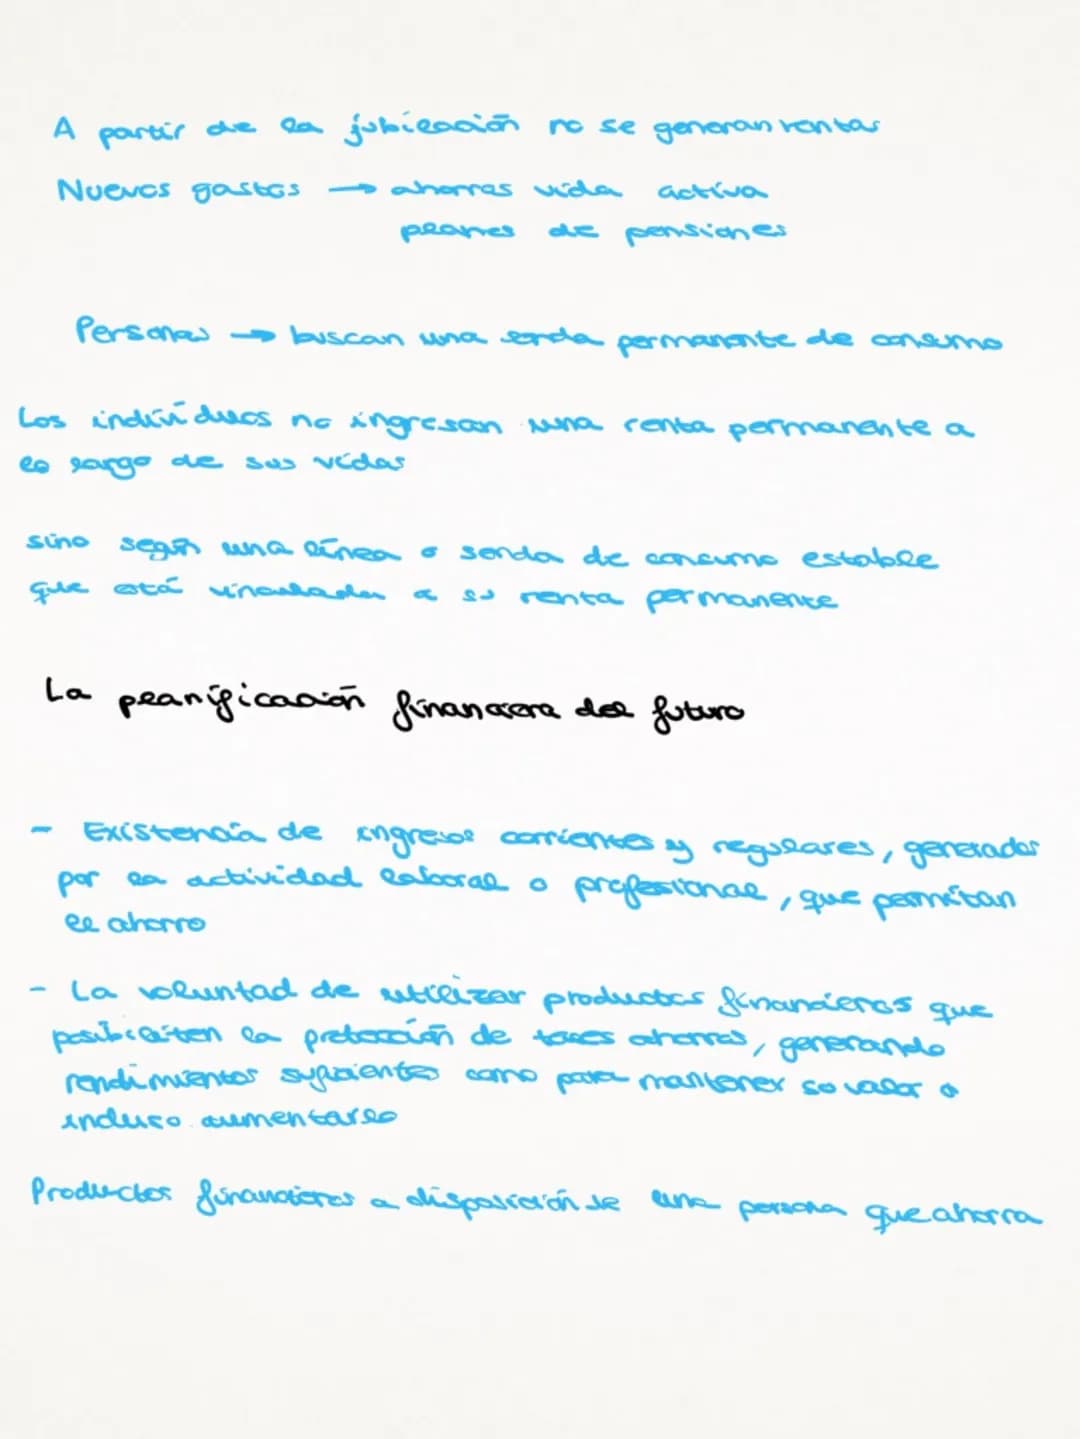 A partir de la jubilación no se generan rentas
Nuevos gastos → ahorros vida activa
planes de pensiones
Personas → buscan una senda permanente de consumo
Los individuos no ingresan una renta permanente a
lo largo de sus vidas
sino según una línea o senda de consumo estable
que está vinculada a su renta permanente
La planificación financiera del futuro
- Existencia de ingresos corrientes y regulares, generados
por la actividad laboral o profesional, que permitan
el ahorro
- La voluntad de utilizar productos financieros que
posibiliten la protección de tales ahorros, generando
rendimientos suficientes como para mantener so valor o
incluso aumentarlo
Productos financieros a disposición de una persona que ahorra